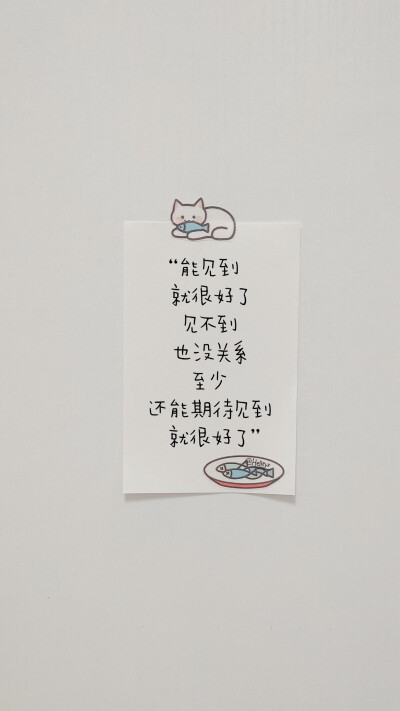 “能见到
就很好了
见不到
也没关系
至少
还能期待见到
就很好了”